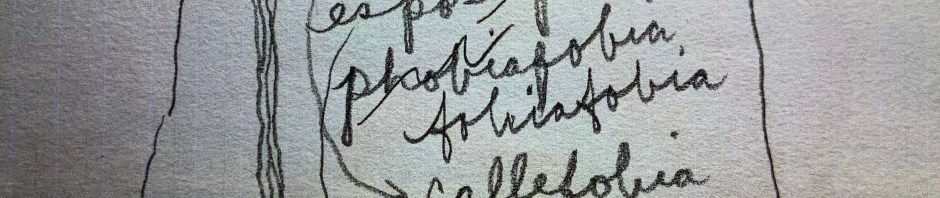 phobiafobia
fobiafobia
callefobia